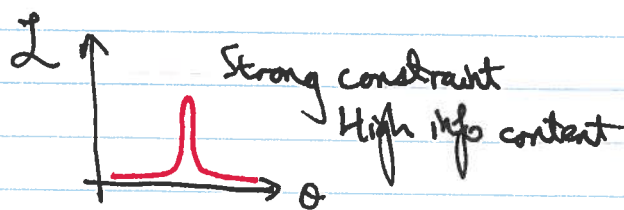 ℒ
Strong constraint
High info content
θ